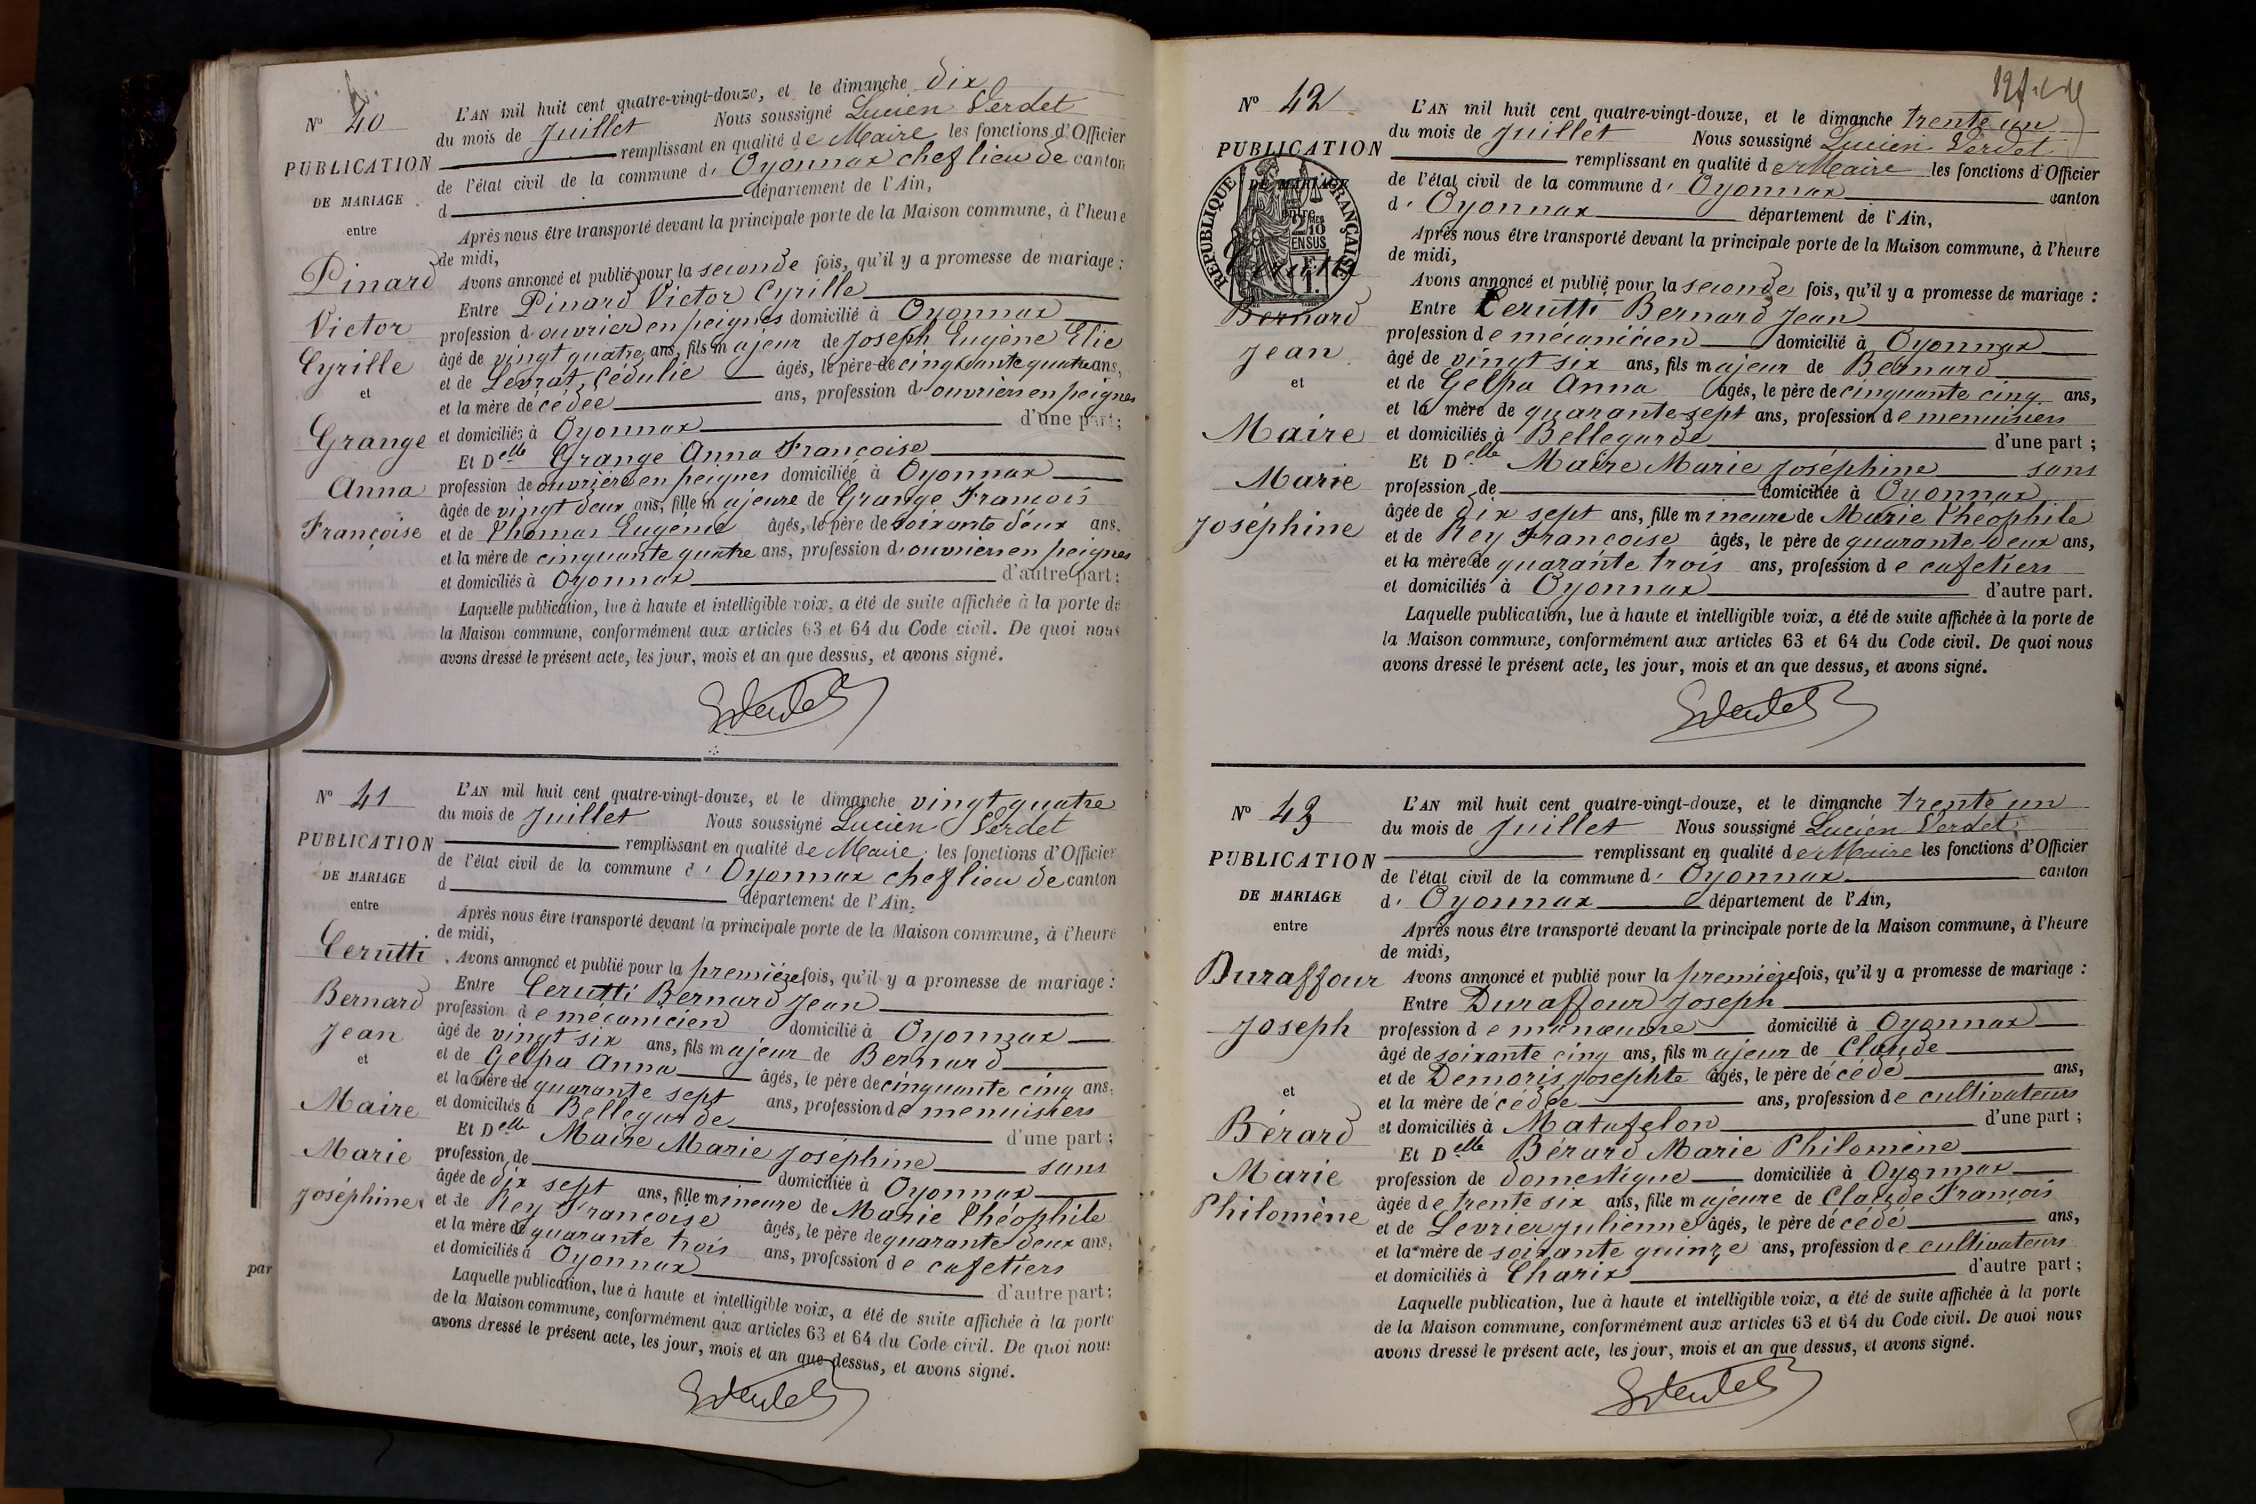 Nº 40
PUBLICATION
DE MARIAGE
entre
Pinard
Victor
Cyrille
et
Grange
Anna
Françoise
L'AN mil huit cent quatre-vingt-douze, et le dimanche dix
du mois de Juillet Nous soussigné Lucien Verdet
remplissant en qualité de Maire les fonctions d'Officier
de l'état civil de la commune d'Oyonnax chef lieu de canton
d département de l'Ain,
Après nous être transporté devant la principale porte de la Maison commune, à l'heure
de midi,
Avons annoncé et publié pour la seconde fois, qu'il y a promesse de mariage :
Entre Pinard Victor Cyrille
profession d'ouvrier en peignes domicilié à Oyonnax
âgé de vingt quatre ans, fils majeur de Joseph Eugène Elie
et de Levrat, Cédulie âgés, le père de cinquante quatre ans,
et la mère décédée ans, profession d'ouvriers en peignes
et domiciliés à Oyonnax d'une part;
Et Delle Grange Anna Françoise
profession de ouvrière en peignes domiciliée à Oyonnax
âgée de vingt deux ans, fille majeure de Grange François
et de Thomas Eugénie âgés, le père de soixante deux ans.
et la mère de cinquante quatre ans, profession d'ouvriers en peignes
et domiciliés à Oyonnax d'autre part;
Laquelle publication, lue à haute et intelligible voix, a été de suite affichée à la porte de
la Maison commune, conformément aux articles 63 et 64 du Code civil. De quoi nous
avons dressé le présent acte, les jour, mois et an que dessus, et avons signé.
Nº 41
PUBLICATION
DE MARIAGE
entre
Cerutti
Bernard
Jean
et
Maire
Marie
Joséphine
L'AN mil huit cent quatre-vingt-douze, et le dimanche vingt quatre
du mois de Juillet Nous soussigné Lucien Verdet
remplissant en qualité de Maire les fonctions d'Officier
de l'état civil de la commune d'Oyonnax chef lieu de canton
d département de l'Ain,
Après nous être transporté devant la principale porte de la Maison commune, à l'heure
de midi,
Avons annoncé et publié pour la première fois, qu'il y a promesse de mariage :
Entre Cerutti Bernard Jean
profession de mécanicien domicilié à Oyonnax
âgé de vingt six ans, fils majeur de Bernard
et de Gelpa Anna âgés, le père de cinquante cinq ans,
et la mère de quarante sept ans, profession de menuisiers
et domiciliés à Bellegarde d'une part;
Et Delle Maire Marie Joséphine sans
profession de domiciliée à Oyonnax
âgée de dix sept ans, fille mineure de Marie Théophile
et de Rey Françoise âgés, le père de quarante deux ans,
et la mère de quarante trois ans, profession de cafetiers
et domiciliés à Oyonnax d'autre part;
Laquelle publication, lue à haute et intelligible voix, a été de suite affichée à la porte
de la Maison commune, conformément aux articles 63 et 64 du Code civil. De quoi nous
avons dressé le présent acte, les jour, mois et an que dessus, et avons signé.
par
Nº 42
PUBLICATION
DE MARIAGE
entre
RÉPUBLIQUE FRANÇAISE
2/10
EN SUS
Cerutti
Bernard
Jean
et
Maire
Marie
Joséphine
L'AN mil huit cent quatre-vingt-douze, et le dimanche trente un
du mois de Juillet Nous soussigné Lucien Verdet
remplissant en qualité de Maire les fonctions d'Officier
de l'état civil de la commune d'Oyonnax canton
d'Oyonnax département de l'Ain,
Après nous être transporté devant la principale porte de la Maison commune, à l'heure
de midi,
Avons annoncé et publié pour la seconde fois, qu'il y a promesse de mariage :
Entre Cerutti Bernard Jean
profession de mécanicien domicilié à Oyonnax
âgé de vingt six ans, fils majeur de Bernard
et de Gelpa Anna âgés, le père de cinquante cinq ans,
et la mère de quarante-sept ans, profession de menuisiers
et domiciliés à Bellegarde d'une part ;
Et Delle Maire Marie Joséphine sans
profession de domiciliée à Oyonnax
âgée de dix sept ans, fille mineure de Marie Théophile
et de Rey Françoise âgés, le père de quarante deux ans,
et la mère de quarante trois ans, profession de cafetiers
et domiciliés à Oyonnax d'autre part.
Laquelle publication, lue à haute et intelligible voix, a été de suite affichée à la porte de
la Maison commune, conformément aux articles 63 et 64 du Code civil. De quoi nous
avons dressé le présent acte, les jour, mois et an que dessus, et avons signé.
Nº 43
PUBLICATION
DE MARIAGE
entre
Duraffour
Joseph
et
Bérard
Marie
Philomène
L'AN mil huit cent quatre-vingt-douze, et le dimanche trente un
du mois de Juillet Nous soussigné Lucien Verdet
remplissant en qualité de Maire les fonctions d'Officier
de l'état civil de la commune d'Oyonnax canton
d'Oyonnax département de l'Ain,
Après nous être transporté devant la principale porte de la Maison commune, à l'heure
de midi,
Avons annoncé et publié pour la première fois, qu'il y a promesse de mariage :
Entre Duraffour Joseph
profession de manœuvre domicilié à Oyonnax
âgé de soixante cinq ans, fils majeur de Claude
et de Demoris Josephte âgés, le père décédé ans,
et la mère décédée ans, profession de cultivateurs
et domiciliés à Matafelon d'une part ;
Et Delle Bérard Marie Philomène
profession de domestique domiciliée à Oyonnax
âgée de trente six ans, fille majeure de Claude François
et de Levrier Julienne âgés, le père décédé ans,
et la mère de soixante quinze ans, profession de cultivateurs
et domiciliés à Charix d'autre part ;
Laquelle publication, lue à haute et intelligible voix, a été de suite affichée à la porte
de la Maison commune, conformément aux articles 63 et 64 du Code civil. De quoi nous
avons dressé le présent acte, les jour, mois et an que dessus, et avons signé.